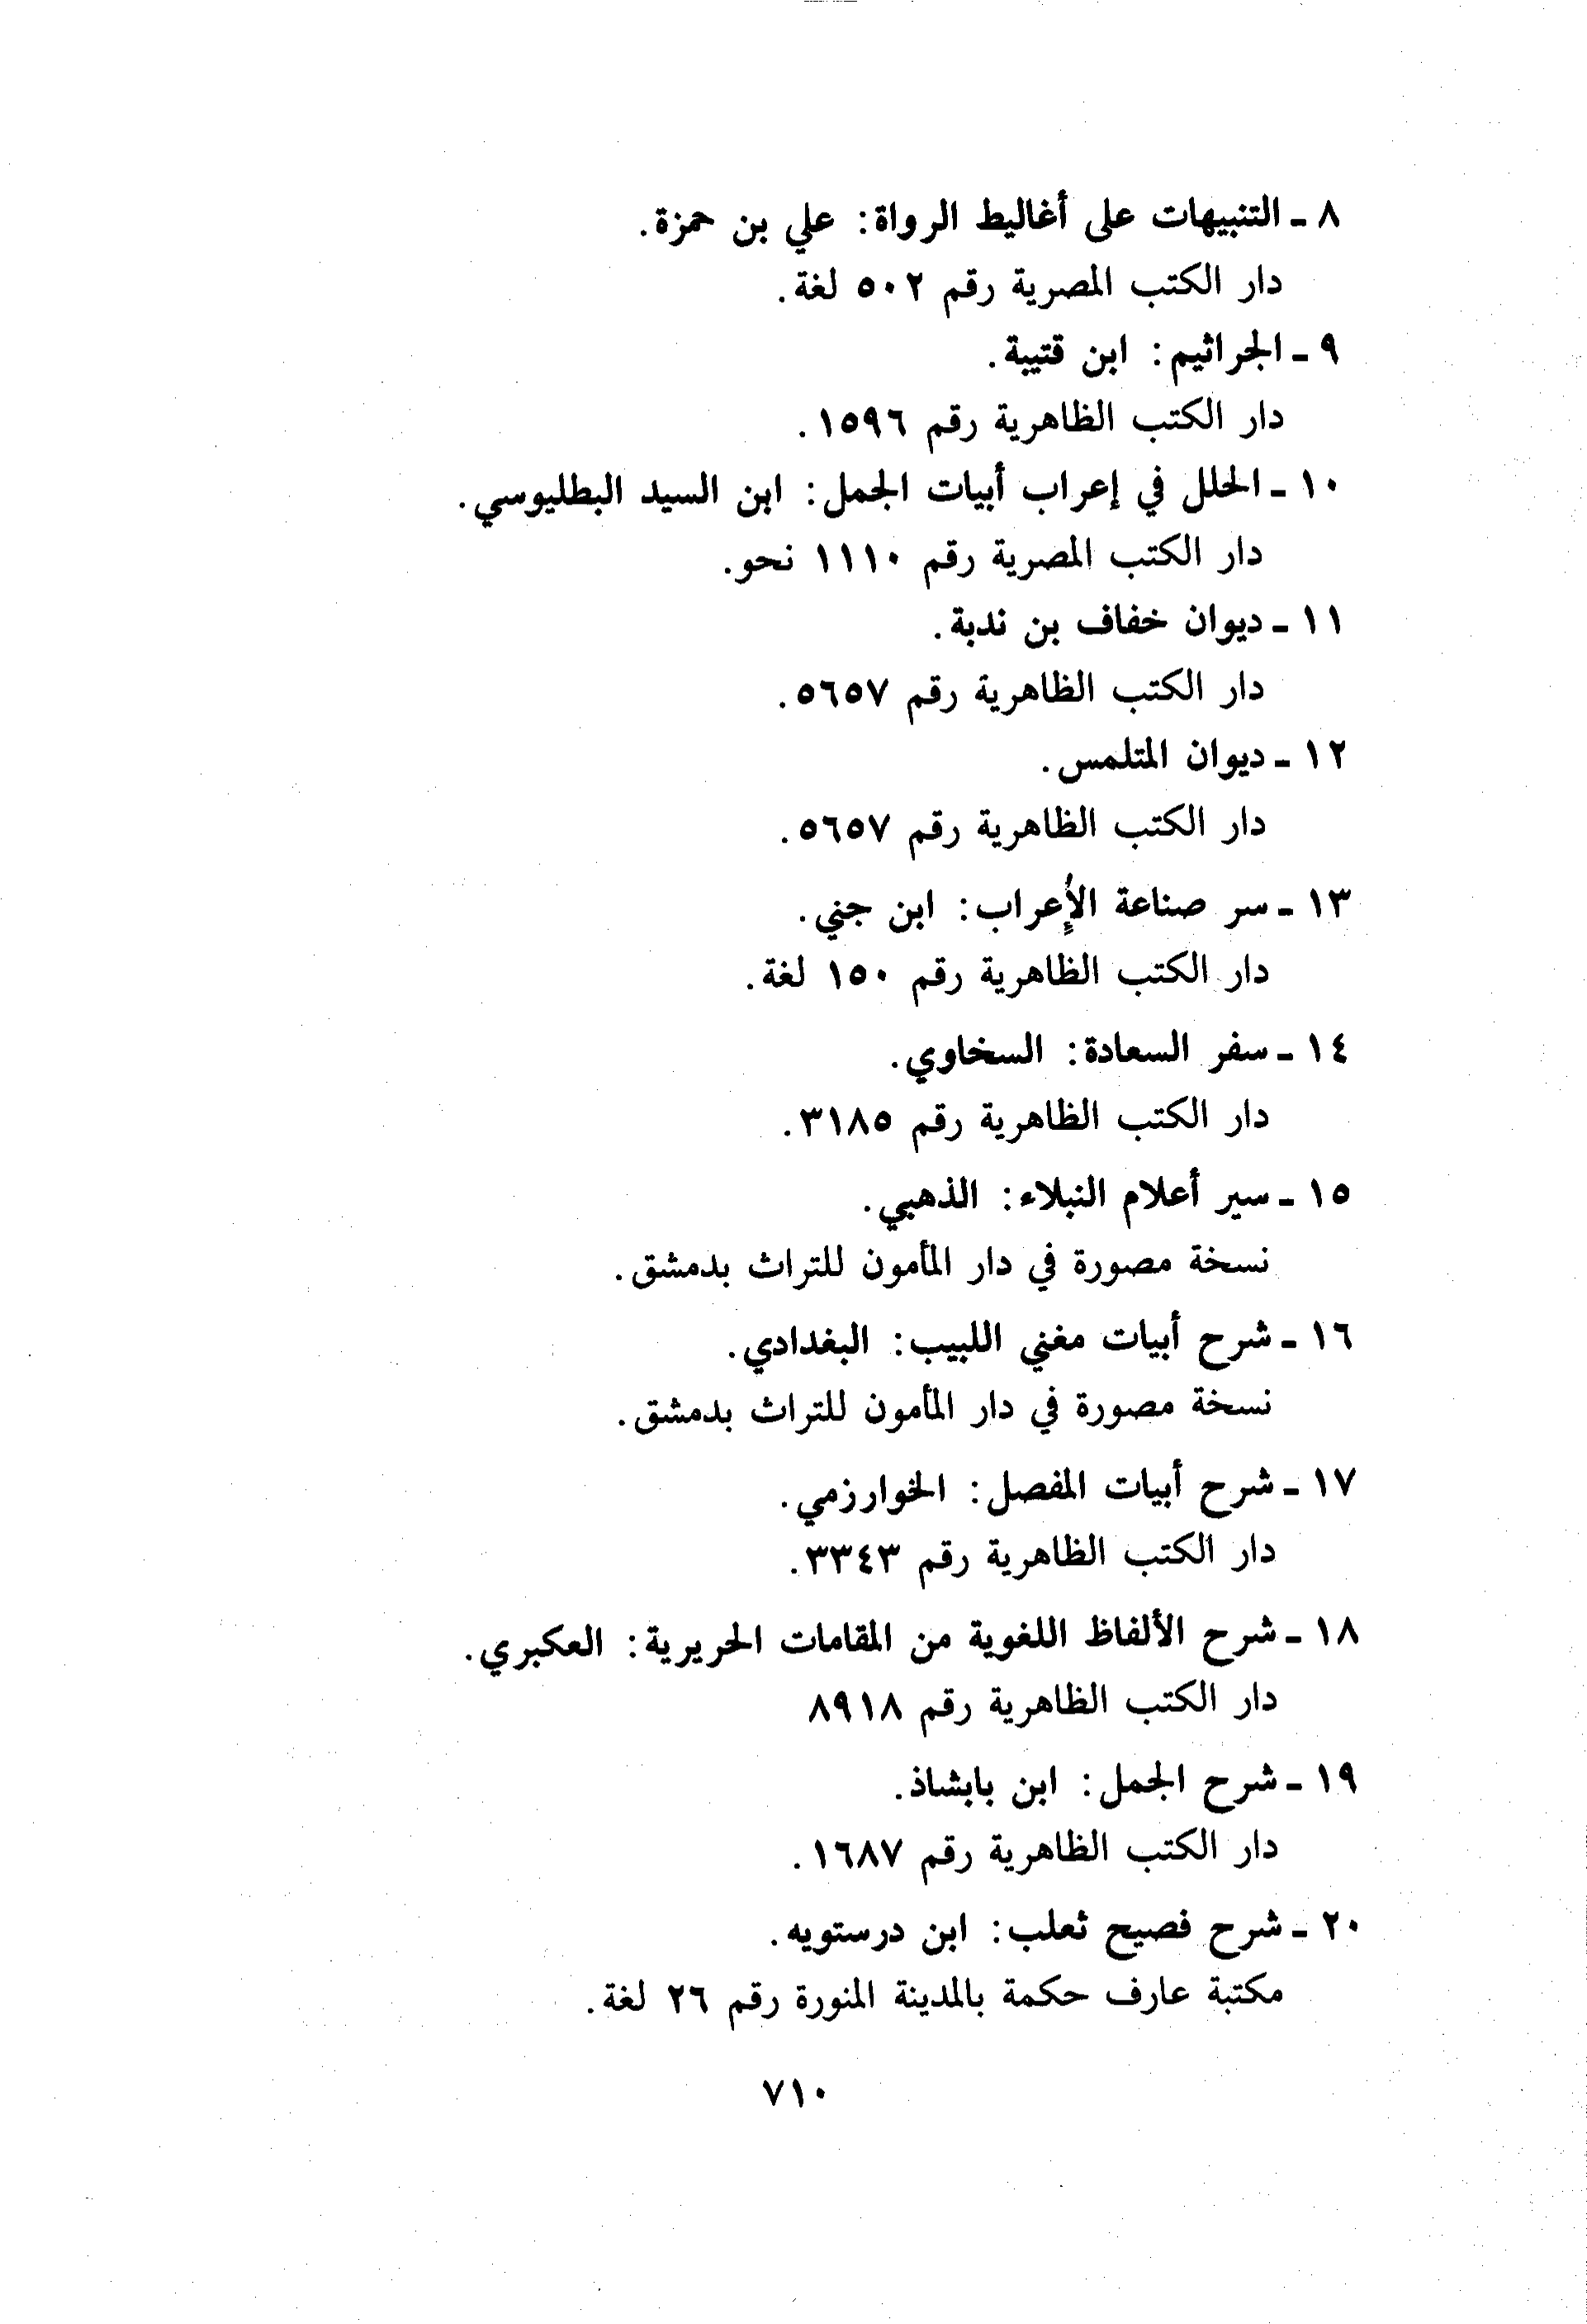 ٨ - التنبيهات على أغاليط الرواة: علي بن حمزة.
دار الكتب المصرية رقم ٥٠٢ لغة.
٩ - الجراثيم: ابن قتيبة.
دار الكتب الظاهرية رقم ١٥٩٦.
١٠ - الحلل في إعراب أبيات الجمل: ابن السيد البطليوسي.
دار الكتب المصرية رقم ١١١٠ نحو.
١١ - ديوان خفاف بن ندبة.
دار الكتب الظاهرية رقم ٥٦٥٧.
١٢ - ديوان المتلمس.
دار الكتب الظاهرية رقم ٥٦٥٧.
١٣ - سر صناعة الأٍعراب: ابن جني.
دار الكتب الظاهرية رقم ١٥٠ لغة.
١٤ - سفر السعادة: السخاوي.
دار الكتب الظاهرية رقم ٣١٨٥.
١٥ - سير أعلام النبلاء: الذهبي.
نسخة مصورة في دار المأمون للتراث بدمشق.
١٦ - شرح أبيات مغني اللبيب: البغدادي.
نسخة مصورة في دار المأمون للتراث بدمشق.
١٧ - شرح أبيات المفصل: الخوارزمي.
دار الكتب الظاهرية رقم ٣٣٤٣.
١٨ - شرح الألفاظ اللغوية من المقامات الحريرية: العكبري.
دار الكتب الظاهرية رقم ٨٩١٨
١٩ - شرح الجمل: ابن بابشاذ.
دار الكتب الظاهرية رقم ١٦٨٧.
٢٠ - شرح فصيح ثعلب: ابن درستويه.
مكتبة عارف حكمة بالمدينة المنورة رقم ٢٦ لغة.
٧١٠